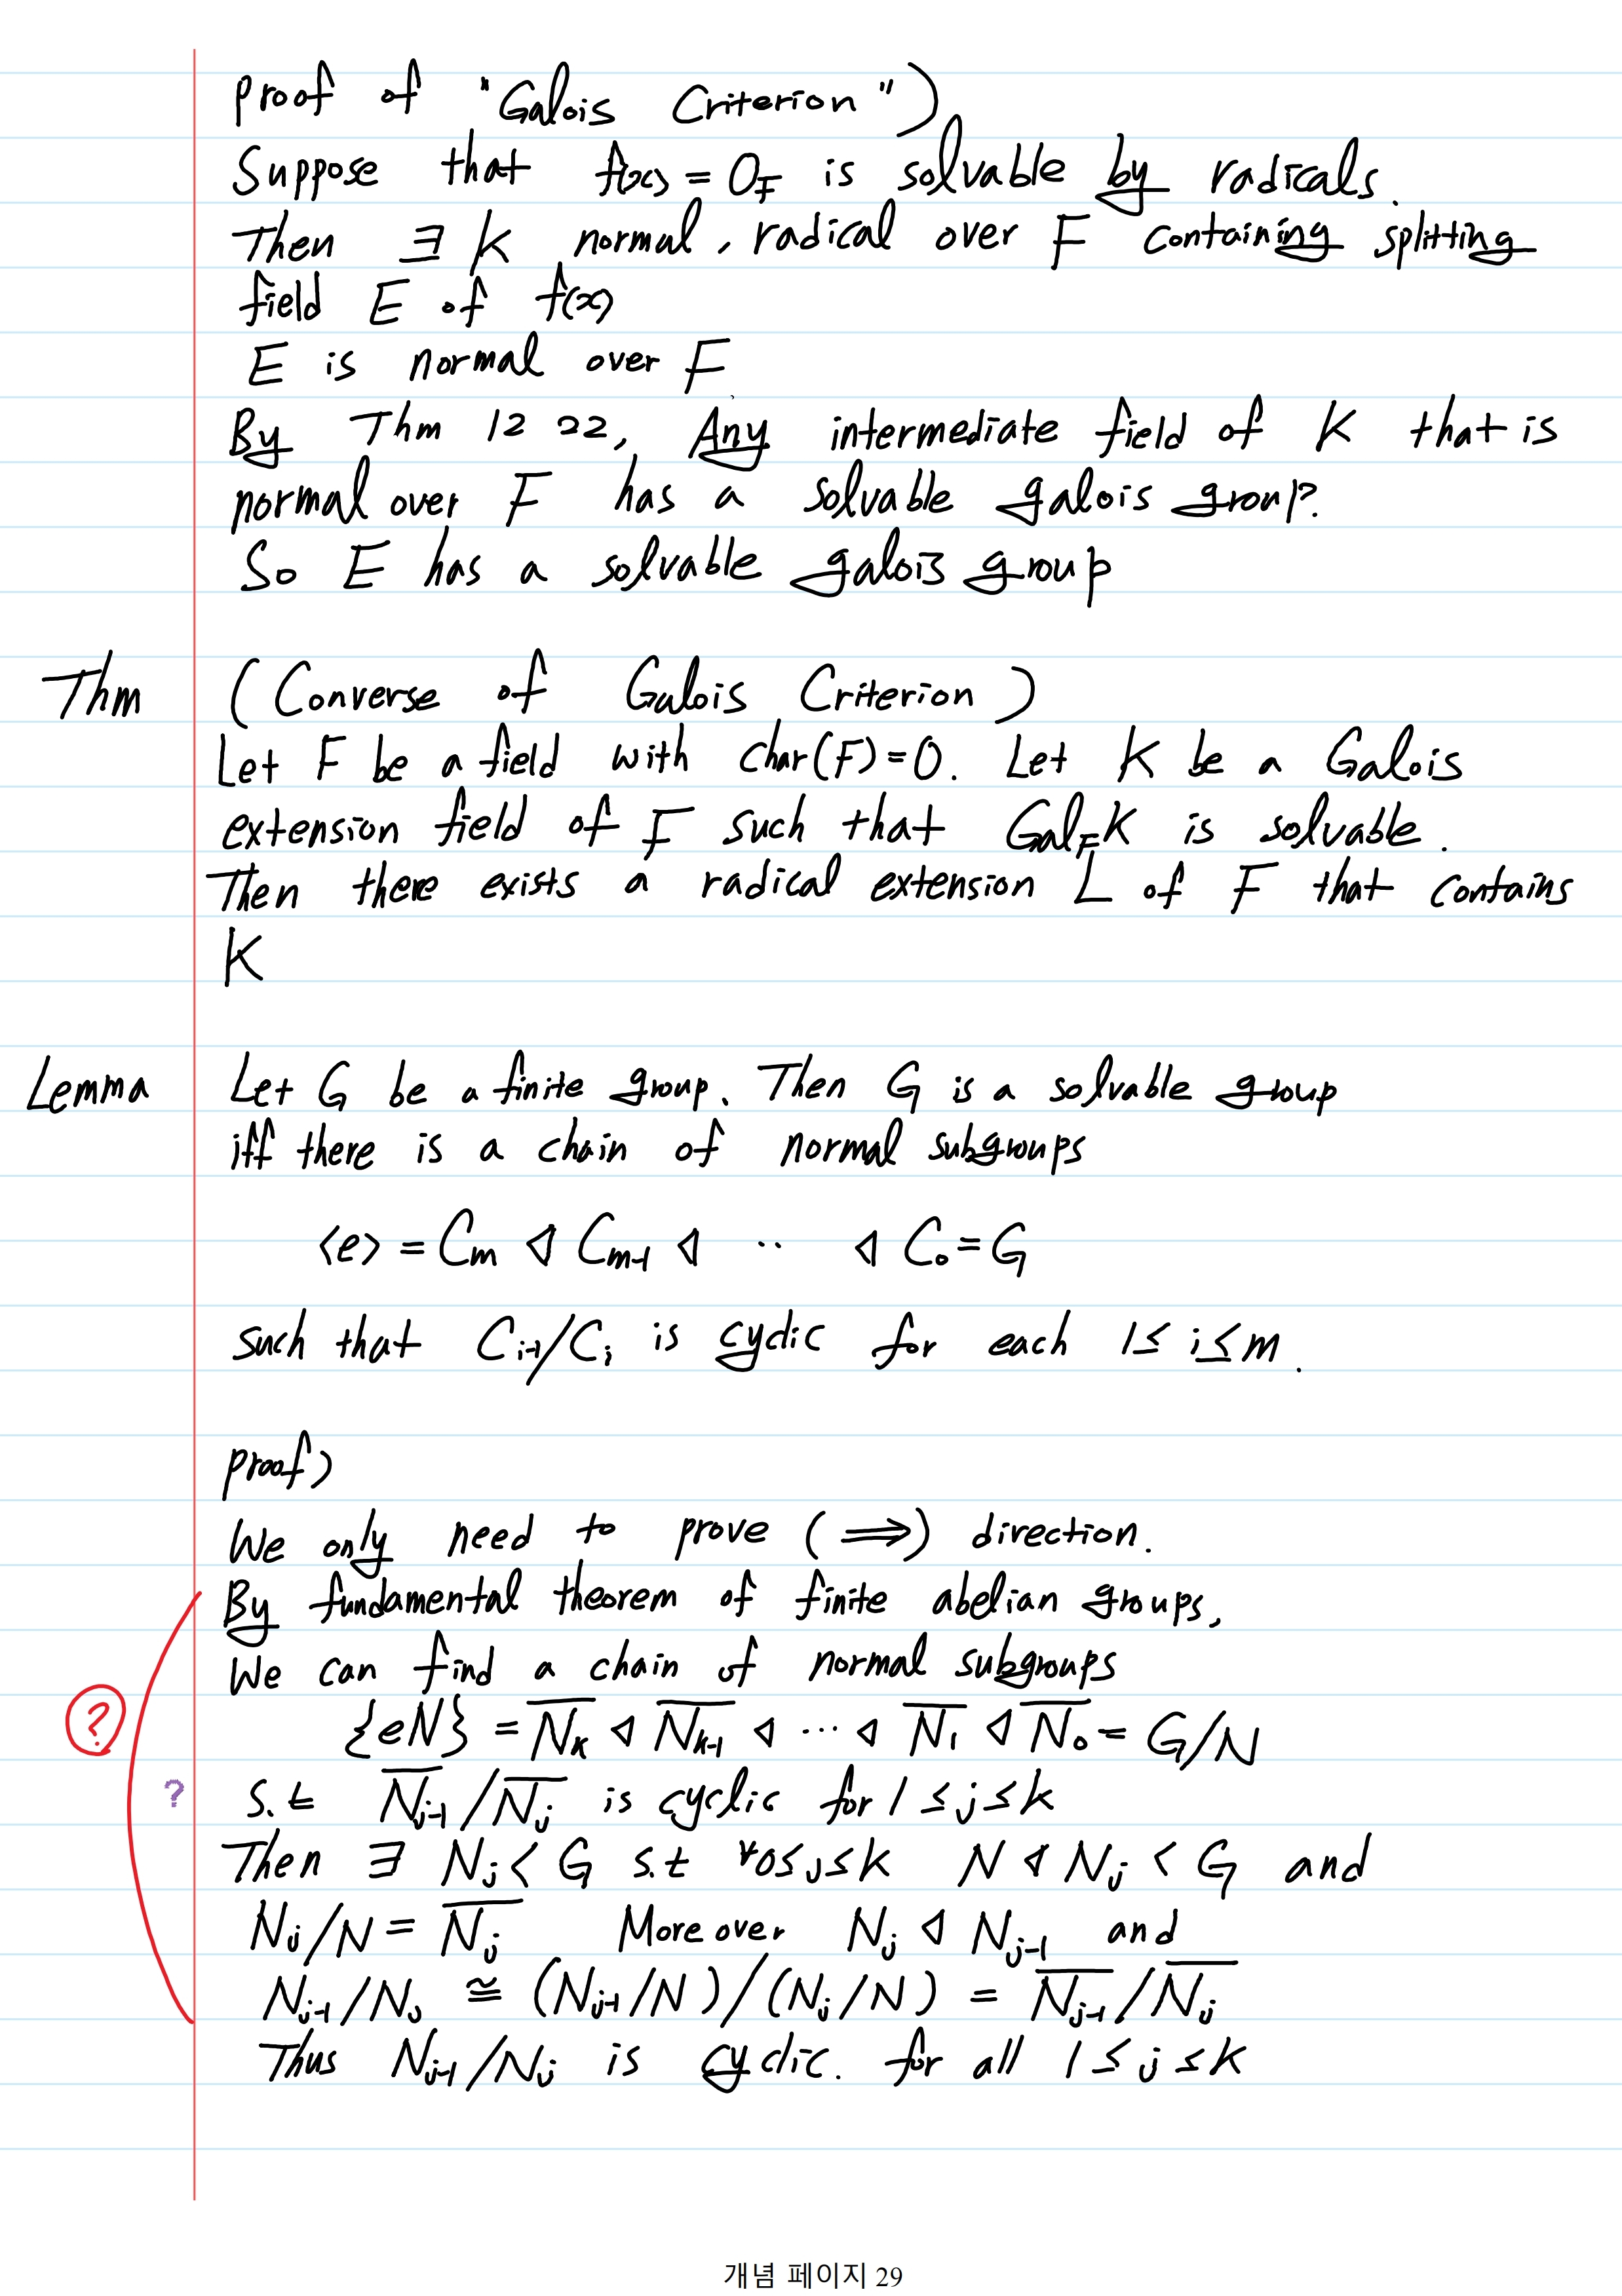 proof of "Galois Criterion")
Suppose that f(x) = 0_F is solvable by radicals.
Then ∃ K normal, radical over F containing splitting
field E of f(x)
E is normal over F
By Thm 12 22, Any intermediate field of K that is
normal over F has a solvable galois group.
So E has a solvable galois group
Thm (Converse of Galois Criterion)
Let F be a field with char(F)=0. Let K be a Galois
extension field of F such that Gal_F K is solvable.
Then there exists a radical extension L of F that contains
K
Lemma Let G be a finite group. Then G is a solvable group
iff there is a chain of normal subgroups
<e> = C_m ◁ C_{m-1} ◁ ·· ◁ C_0 = G
such that C_{i-1}/C_i is cyclic for each 1 ≤ i ≤ m.
proof)
We only need to prove (⟹) direction.
By fundamental theorem of finite abelian groups,
We can find a chain of normal subgroups
? {eN} = \overline{N_k} ◁ \overline{N_{k-1}} ◁ ··· ◁ \overline{N_1} ◁ \overline{N_0} = G/N
? s.t \overline{N_{j-1}}/\overline{N_j} is cyclic for 1 ≤ j ≤ k
Then ∃ N_j < G s.t ∀0≤j≤k N ◁ N_j < G and
N_j/N = \overline{N_j} Moreover N_j ◁ N_{j-1} and
N_{j-1}/N_j ≅ (N_{j-1}/N)/(N_j/N) = \overline{N_{j-1}}/\overline{N_j}
Thus N_{j-1}/N_j is cyclic. for all 1 ≤ j ≤ k
개념 페이지 29